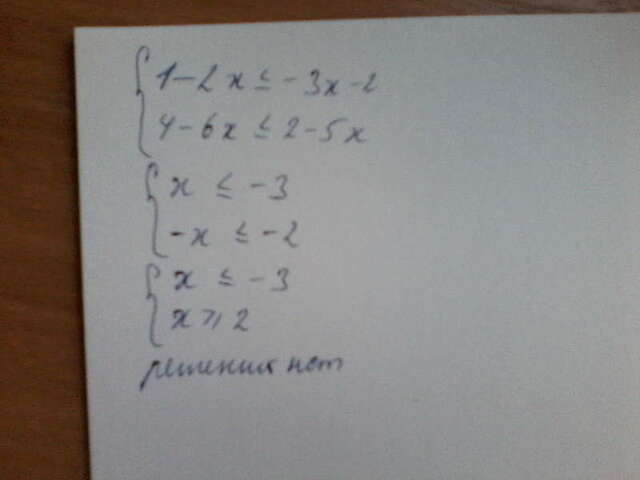 1-2x ≤ -3x-2
4-6x ≤ 2-5x
x ≤ -3
-x ≤ -2
x ≤ -3
x ≥ 2
решения нет